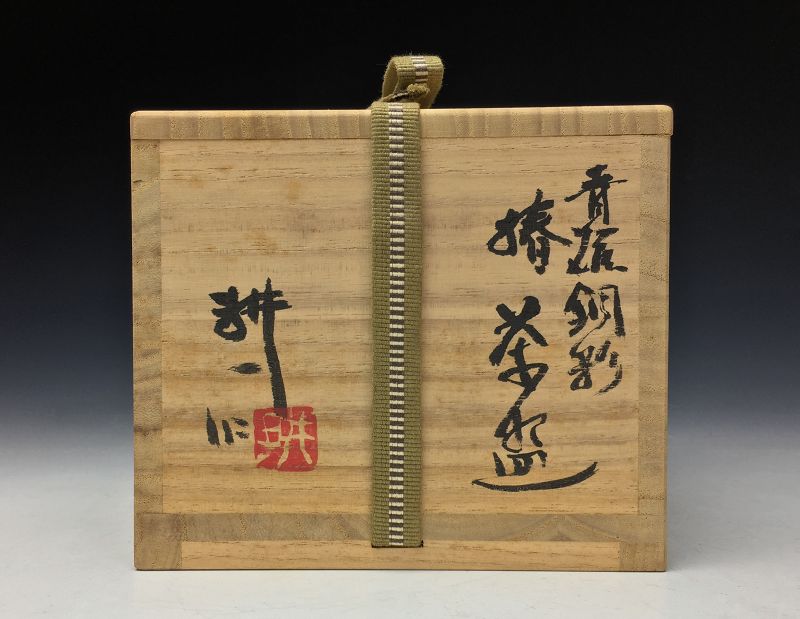 青磁銅彩
椿茶盌
耕一作